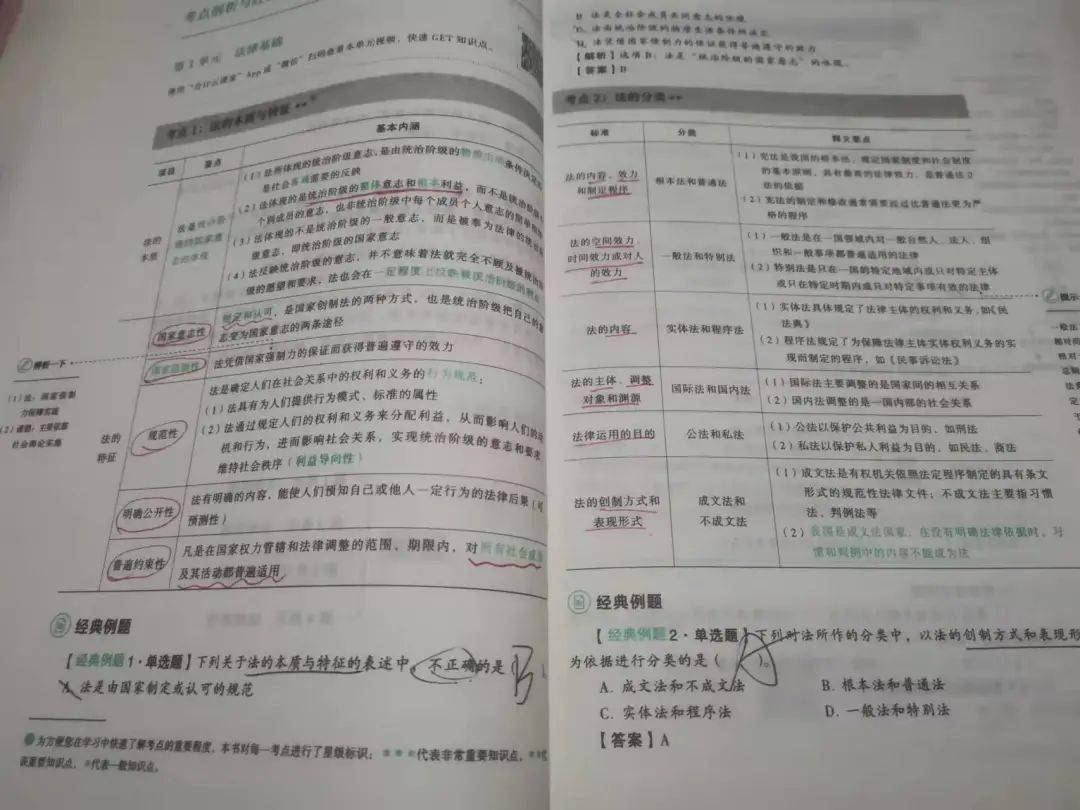 考点剖析与
第1单元 法律基础
使用“会计云课堂”App或“微信”扫码查看本单元视频，快速GET知识点。
考点1：法的本质与特征
项目
要点
基本内涵
法的
本质
法是统治阶
级的国家意
志的体现
（1）法所体现的统治阶级意志，是由统治阶级的物质生活条件决定
是社会客观需要的反映
（2）法体现的是统治阶级的整体意志和根本利益，而不是统治阶级
个别成员的意志，也非统治阶级中每个成员个人意志的简单相加
（3）法体现的不是统治阶级的一般意志，而是被奉为法律的统治
级意志，即统治阶级的国家意志
（4）法反映统治阶级的意志，并不意味着法就完全不顾及被统治
级的愿望和要求，法也会在一定程度上反映被统治阶级的
法的
特征
国家意志性
制定和认可，是国家创制法的两种方式，也是统治阶级把自己的
志变为国家意志的两条途径
国家强制性
法凭借国家强制力的保证而获得普遍遵守的效力
规范性
法是确定人们在社会关系中的权利和义务的行为规范：
（1）法具有为人们提供行为模式、标准的属性
（2）法通过规定人们的权利和义务来分配利益，从而影响人们的
机和行为，进而影响社会关系，实现统治阶级的意志和要求
维持社会秩序（利益导向性）
明确公开性
法有明确的内容，能使人们预知自己或他人一定行为的法律后果（可
预测性）
普遍约束性
凡是在国家权力管辖和法律调整的范围、期限内，对所有社会成
及其活动都普遍适用
辨析一下
（1）法：国家强制
力保障实施
（2）道德：主要依靠
社会舆论实施
经典例题
【经典例题1·单选题】下列关于法的本质与特征的表述中，不正确的是
B
A. 法是由国家制定或认可的规范
为方便您在学习中快速了解考点的重要程度，本书对每一考点进行了星级标识：***代表非常重要知识点，**代
表重要知识点，*代表一般知识点。
B. 法是全社会成员共同意志的体现
C. 法由统治阶级的物质生活条件所决定
D. 法凭借国家强制力的保证获得普遍遵守的效力
【解析】选项B：法是“统治阶级的国家意志”的体现。
【答案】B
考点2：法的分类**
标准
分类
释义要点
法的内容、效力
和制定程序
根本法和普通法
（1）宪法是我国的根本法，规定国家制度和社会制度
的基本原则，具有最高的法律效力，是普通法立
法的依据
（2）宪法的制定和修改通常需要经过比普通法更为严
格的程序
法的空间效力、
时间效力或对人
的效力
一般法和特别法
（1）一般法是在一国领域内对一般自然人、法人、组
织和一般事项都普遍适用的法律
（2）特别法是只在一国的特定地域内或只对特定主体
或只在特定时期内或只对特定事项有效的法律
法的内容
实体法和程序法
（1）实体法具体规定了法律主体的权利和义务，如《民
法典》
（2）程序法规定了为保障法律主体实体权利义务的实
现而制定的程序，如《民事诉讼法》
法的主体、调整
对象和渊源
国际法和国内法
（1）国际法主要调整的是国家间的相互关系
（2）国内法调整的是一国内部的社会关系
法律运用的目的
公法和私法
（1）公法以保护公共利益为目的，如刑法
（2）私法以保护私人利益为目的，如民法、商法
法的创制方式和
表现形式
成文法和
不成文法
（1）成文法是有权机关依照法定程序制定的具有条文
形式的规范性法律文件；不成文法主要指习惯
法、判例法等
（2）我国是成文法国家，在没有明确法律依据时，习
惯和判例中的内容不能成为法
提示
经典例题
【经典例题2·单选题】下列对法所作的分类中，以法的创制方式和表现形
为依据进行分类的是（A）。
A. 成文法和不成文法
B. 根本法和普通法
C. 实体法和程序法
D. 一般法和特别法
【答案】A